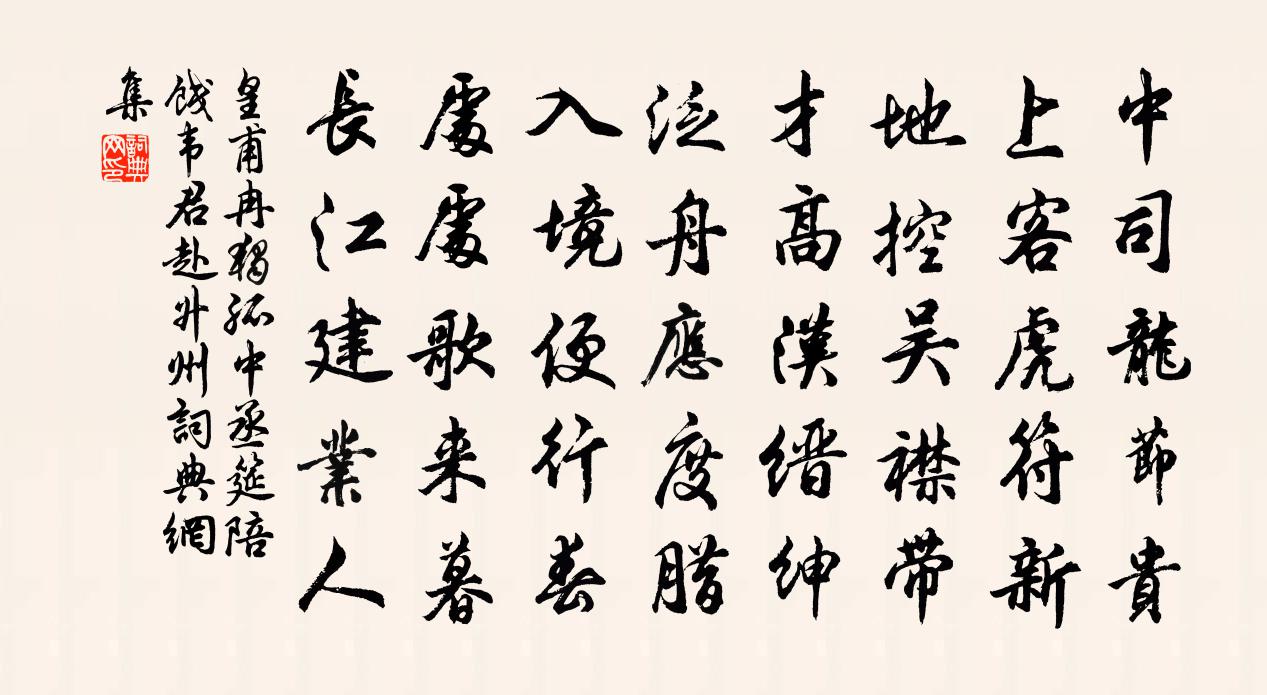 中司龍節貴
上客虎符新
地控吴襟带
才高漢缙绅
泛舟應度腊
入境便行春
處處歌来暮
長江建業人
皇甫冉獨孤中丞筵陪
餞韦君赴升州詞典網
集
詞典網印